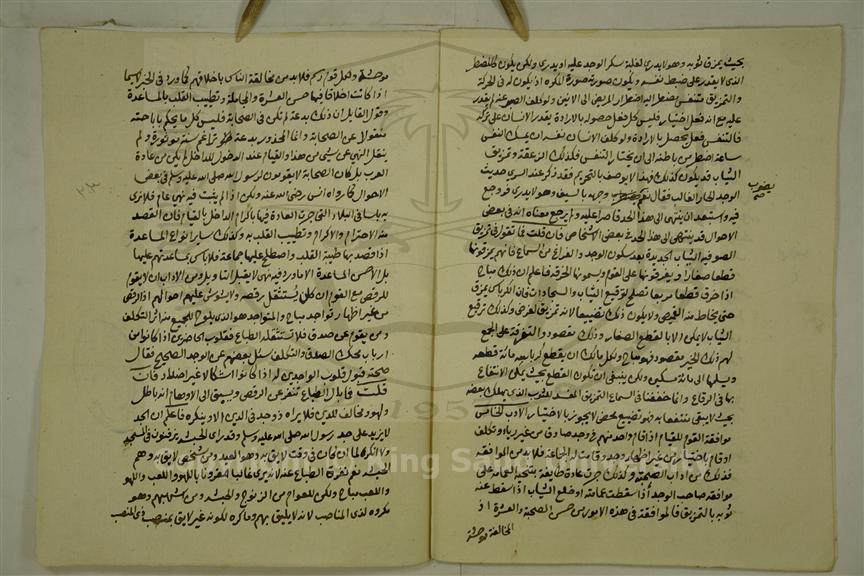 بحيث يمزق ثوبه وهو لا يدرى لغلبة سكر الوجد عليه او يدرى ولكن يكون كالمضطر
الذى لا يقدر على ضبط نفسه ويكون صورته صورة المكره اذ يكون له فى الحركة
والتمزيق متنفس يضطر اليه اضطرار المريض الى الانين ولو كلف الصبر عنه لم يقدر
عليه مع انه فعل اختيار فليس كل فعل حصوله بالارادة يقدر الانسان على تركه
فالتنفس فعل يحصل بالارادة ولو كلف الانسان نفسه ان يمسك النفس
ساعة اضطر من باطنه الى ان يختار التنفس فكذلك الزعقة وتمزيق
الثياب قد يكون كذلك فهذا لا يوصف بالتحريم فقد ذكر عند السرى حديث
الوجد الحاد الغالب فقال نعم يضرب وجهه بالسيف وهو لا يدرى فروجع
فيه واستبعد ان ينتهى الى هذا الحد فاصر عليه ولم يرجع معناه انه فى بعض
الاحوال قد ينتهى الى هذا الحد فى بعض الاشخاص فان قلت فما تقول فى تمزيق
الصوفية الثياب الجديدة بعد سكون الوجد والفراغ من السماع فانهم يمزقونها
قطعا صغارا ويفرقونها على القوم ويسمونها الخرقة فاعلم ان ذلك مباح
اذا خرق قطعا مربعا تصلح لترقيع الثياب والسجادات فان الكرباس يمزق
حتى يخاط منه القميص ولا يكون ذلك تضييعا لانه تمزيق لغرض وكذلك ترقيع
الثياب لا يمكن الا بالقطع الصغار وذلك مقصود والتفرقة على الجميع
ليعم ذلك الخير مقصود فهو مباح ولكل مالك ان يقطع كرباسه مائة قطعة
ويسلمها الى مائة مسكين ولكن ينبغى ان تكون القطع بحيث يمكن الانتفاع
بها فى الرقاع وانما منعنا فى السماع التمزيق المفسد للثوب الذى يهلك بعضه
بحيث لا يبقى منتفعا به فهو تضييع محض لا يجوز بالاختيار الادب الخامس
موافقة القوم للقيام اذا قام واحد منهم فى وجد صادق من غير رياء وتكلف
او قام باختيار من غير اظهار وجد وقامت له الجماعة فلا بد من الموافقة
فذلك من اداب الصحبة وكذلك ان جرت عادة طائفة بتنحية العمامة على
موافقة صاحب الوجد اذا سقطت عمامته او خلع الثياب اذا سقط عنه
ثوبه بالتمزيق فالموافقة فى هذه الامور من حسن الصحبة والعشرة اذ
المخالفة موحشة
يضرب صح
موحشة ولكل قوم رسم فلا بد من مخالقة الناس باخلاقهم كما ورد فى الخبر لا سيما
اذا كانت اخلاقا فيها حسن العشرة والمجاملة وتطييب القلب بالمساعدة
وقول القائل ان ذلك بدعة لم تكن فى الصحابة فليس كل ما يحكم باباحته
منقولا عن الصحابة وانما المحذور بدعة تراغم سنة موثورة ولم
ينقل النهى عن شئ من هذا والقيام عند الدخول للداخل لم يكن من عادة
العرب بل كان الصحابة لا يقومون لرسول الله صلى الله عليه وسلم فى بعض
الاحوال كما رواه انس رضى الله عنه ولكن اذا لم يثبت فيه نهى عام فلا نرى
به باسا فى البلاد التى جرت العادة فيها باكرام الداخل بالقيام فان القصد
منه الاحترام والاكرام وتطييب القلب به وكذلك سائر انواع المساعدة
اذا قصد بها طيبة القلب واصطلح عليها جماعة فلا باس بمساعدتهم عليها
بل الاحسن المساعدة الا ما ورد فيه نهى لا يقبل التاويل ومن الاداب ان لا يقوم
للرقص مع القوم ان كان يستثقل رقصه ولا يشوش عليهم احوالهم اذ الرقص
من غير اظهار تواجد مباح والمتواجد هو الذى يلوح للجميع منه اثر التكلف
ومن يقوم عن صدق فلا تستثقله الطباع فقلوب الحاضرين اذا كانوا من
ارباب محك الصدق والتكلف سئل بعضهم عن الوجد الصحيح فقال
صحته قبول قلوب الواجدين له اذا كانوا اشكالا غير اضداد فان
قلت فما بال الطباع تنفر عن الرقص ويسبق الى الاوهام انه باطل
ولهو ومخالف للدين فلا يراه ذو جد فى الدين الا وينكره فاعلم ان الجد
لا يزيد على جد رسول الله صلى الله عليه وسلم وقد راى الحبشة يزفنون فى المسجد
ولا انكره لما ان كان فى وقت لايق به وهو العيد ومن شخص لايق به وهم
الحبشة نعم نفرة الطباع عنه لانه يرى غالبا مقرونا باللهو واللعب واللهو
واللعب مباح ولكن للعوام من الزنوج والحبشة ومن يشبههم وهو
مكروه لذى المناصب لانه لا يليق بهم وما كره لكونه غير لايق بمنصب ذى المنصب